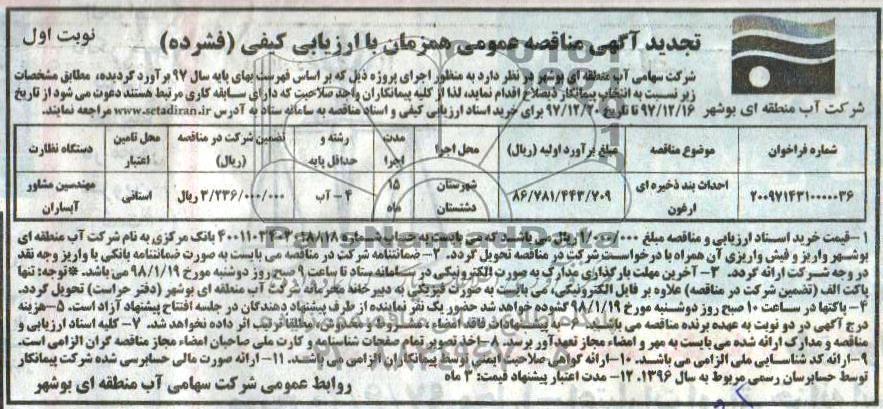 تجدید آگهی مناقصه عمومی همزمان با ارزیابی کیفی (فشرده)
نوبت اول
شرکت آب منطقه ای بوشهر
شرکت سهامی آب منطقه ای بوشهر در نظر دارد به منظور اجرای پروژه ذیل که بر اساس فهرست بهای پایه سال ۹۷ برآورد گردیده، مطابق مشخصات
زیر نسبت به انتخاب پیمانکار ذیصلاح اقدام نماید، لذا از کلیه پیمانکاران واجد صلاحیت که دارای سابقه کاری مرتبط هستند دعوت می شود از تاریخ
۹۷/۱۲/۱۶ تا تاریخ ۹۷/۱۲/۲۰ برای خرید اسناد ارزیابی کیفی و اسناد مناقصه به سامانه ستاد به آدرس www.setadiran.ir مراجعه نمایند.
شماره فراخوان موضوع مناقصه مبلغ برآورد اولیه (ریال) محل اجرا مدت اجرا رشته و حداقل پایه تضمین شرکت در مناقصه (ریال) محل تامین اعتبار دستگاه نظارت
۲۰۰۹۷۱۴۳۱۰۰۰۰۰۳۶ احداث بند ذخیره ای ارغون ۸۶/۷۸۱/۴۴۳/۷۰۹ شهرستان دشتستان ۱۵ ماه ۴- آب ۳/۲۳۶/۰۰۰/۰۰۰ ریال استانی مهندسین مشاور آبساران
۱- قیمت خرید اسناد ارزیابی و مناقصه مبلغ ریال می باشد که می بایست به حساب بانک مرکزی به نام شرکت آب منطقه ای
بوشهر واریز و فیش واریزی آن همراه با درخواست شرکت در مناقصه تحویل گردد. ۲- ضمانتنامه شرکت در مناقصه می بایست به صورت ضمانتنامه بانکی یا واریز وجه نقد
در وجه شرکت ارائه گردد. ۳- آخرین مهلت بارگذاری مدارک به صورت الکترونیکی در سامانه ستاد تا ساعت ۹ صبح روز دوشنبه مورخ ۹۸/۱/۱۹ می باشد. *توجه: تنها
پاکت الف (تضمین شرکت در مناقصه) علاوه بر فایل الکترونیکی می بایست به صورت فیزیکی به دبیرخانه محرمانه شرکت آب منطقه ای بوشهر (دفتر حراست) تحویل گردد.
۴- پاکتها در ساعت ۱۰ صبح روز دوشنبه مورخ ۹۸/۱/۱۹ گشوده خواهد شد حضور یک نفر نماینده از طرف پیشنهاد دهندگان در جلسه افتتاح پیشنهاد آزاد است. ۵- هزینه
درج آگهی در دو نوبت به عهده برنده مناقصه می باشد. ۶- به پیشنهادات فاقد امضاء، مشروط و مخدوش، مطلقا ترتیب اثر داده نخواهد شد. ۷- کلیه اسناد ارزیابی و
مناقصه و مدارک ارائه شده می بایست به مهر و امضاء مجاز تعهدآور برسد. ۸- اخذ تصویر تمام صفحات شناسنامه و کارت ملی صاحبان امضاء مجاز مناقصه گران الزامی است.
۹- ارائه کد شناسایی ملی الزامی می باشد. ۱۰- ارائه گواهی صلاحیت ایمنی توسط پیمانکاران الزامی می باشد. ۱۱- ارائه صورت مالی حسابرسی شده شرکت پیمانکار
توسط حسابرسان رسمی مربوط به سال ۱۳۹۶. ۱۲- مدت اعتبار پیشنهاد قیمت: ۳ ماه
روابط عمومی شرکت سهامی آب منطقه ای بوشهر
ParsNamadData